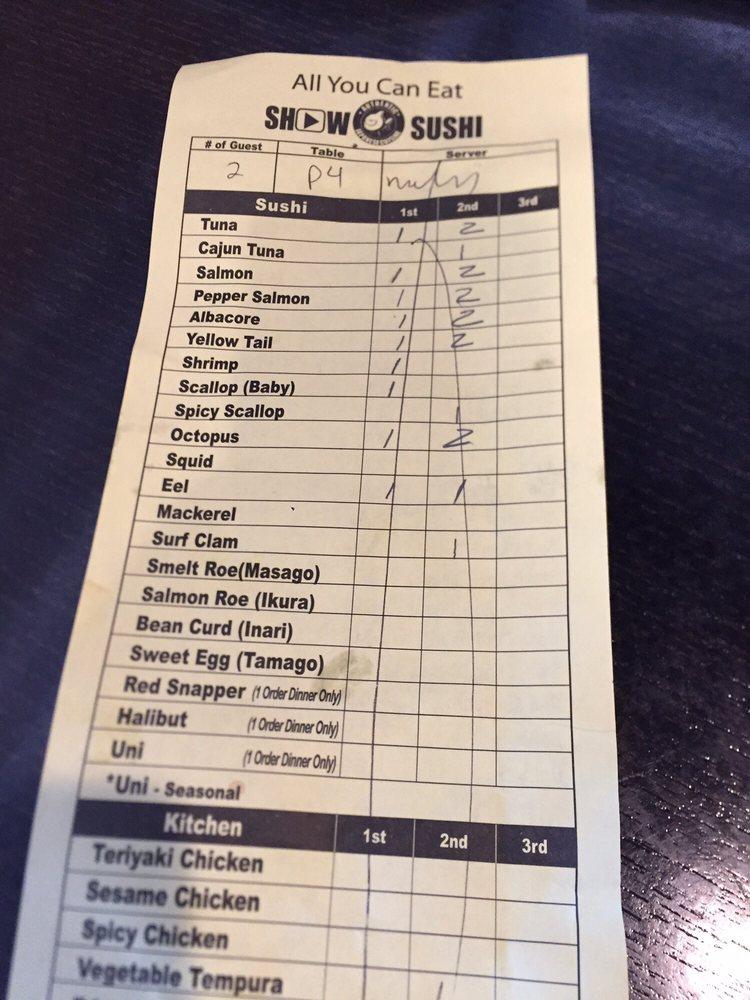 All You Can Eat
SHOW SUSHI
# of Guest Table Server
2 P4
Sushi 1st 2nd 3rd
Tuna 1 2
Cajun Tuna 1
Salmon 1 2
Pepper Salmon 1 2
Albacore 1 2
Yellow Tail 1 2
Shrimp 1
Scallop (Baby) 1
Spicy Scallop 1
Octopus 1 2
Squid
Eel 1 1
Mackerel
Surf Clam 1
Smelt Roe(Masago)
Salmon Roe (Ikura)
Bean Curd (Inari)
Sweet Egg (Tamago)
Red Snapper (1 Order Dinner Only)
Halibut (1 Order Dinner Only)
Uni (1 Order Dinner Only)
*Uni - Seasonal
Kitchen 1st 2nd 3rd
Teriyaki Chicken
Sesame Chicken
Spicy Chicken
Vegetable Tempura 1